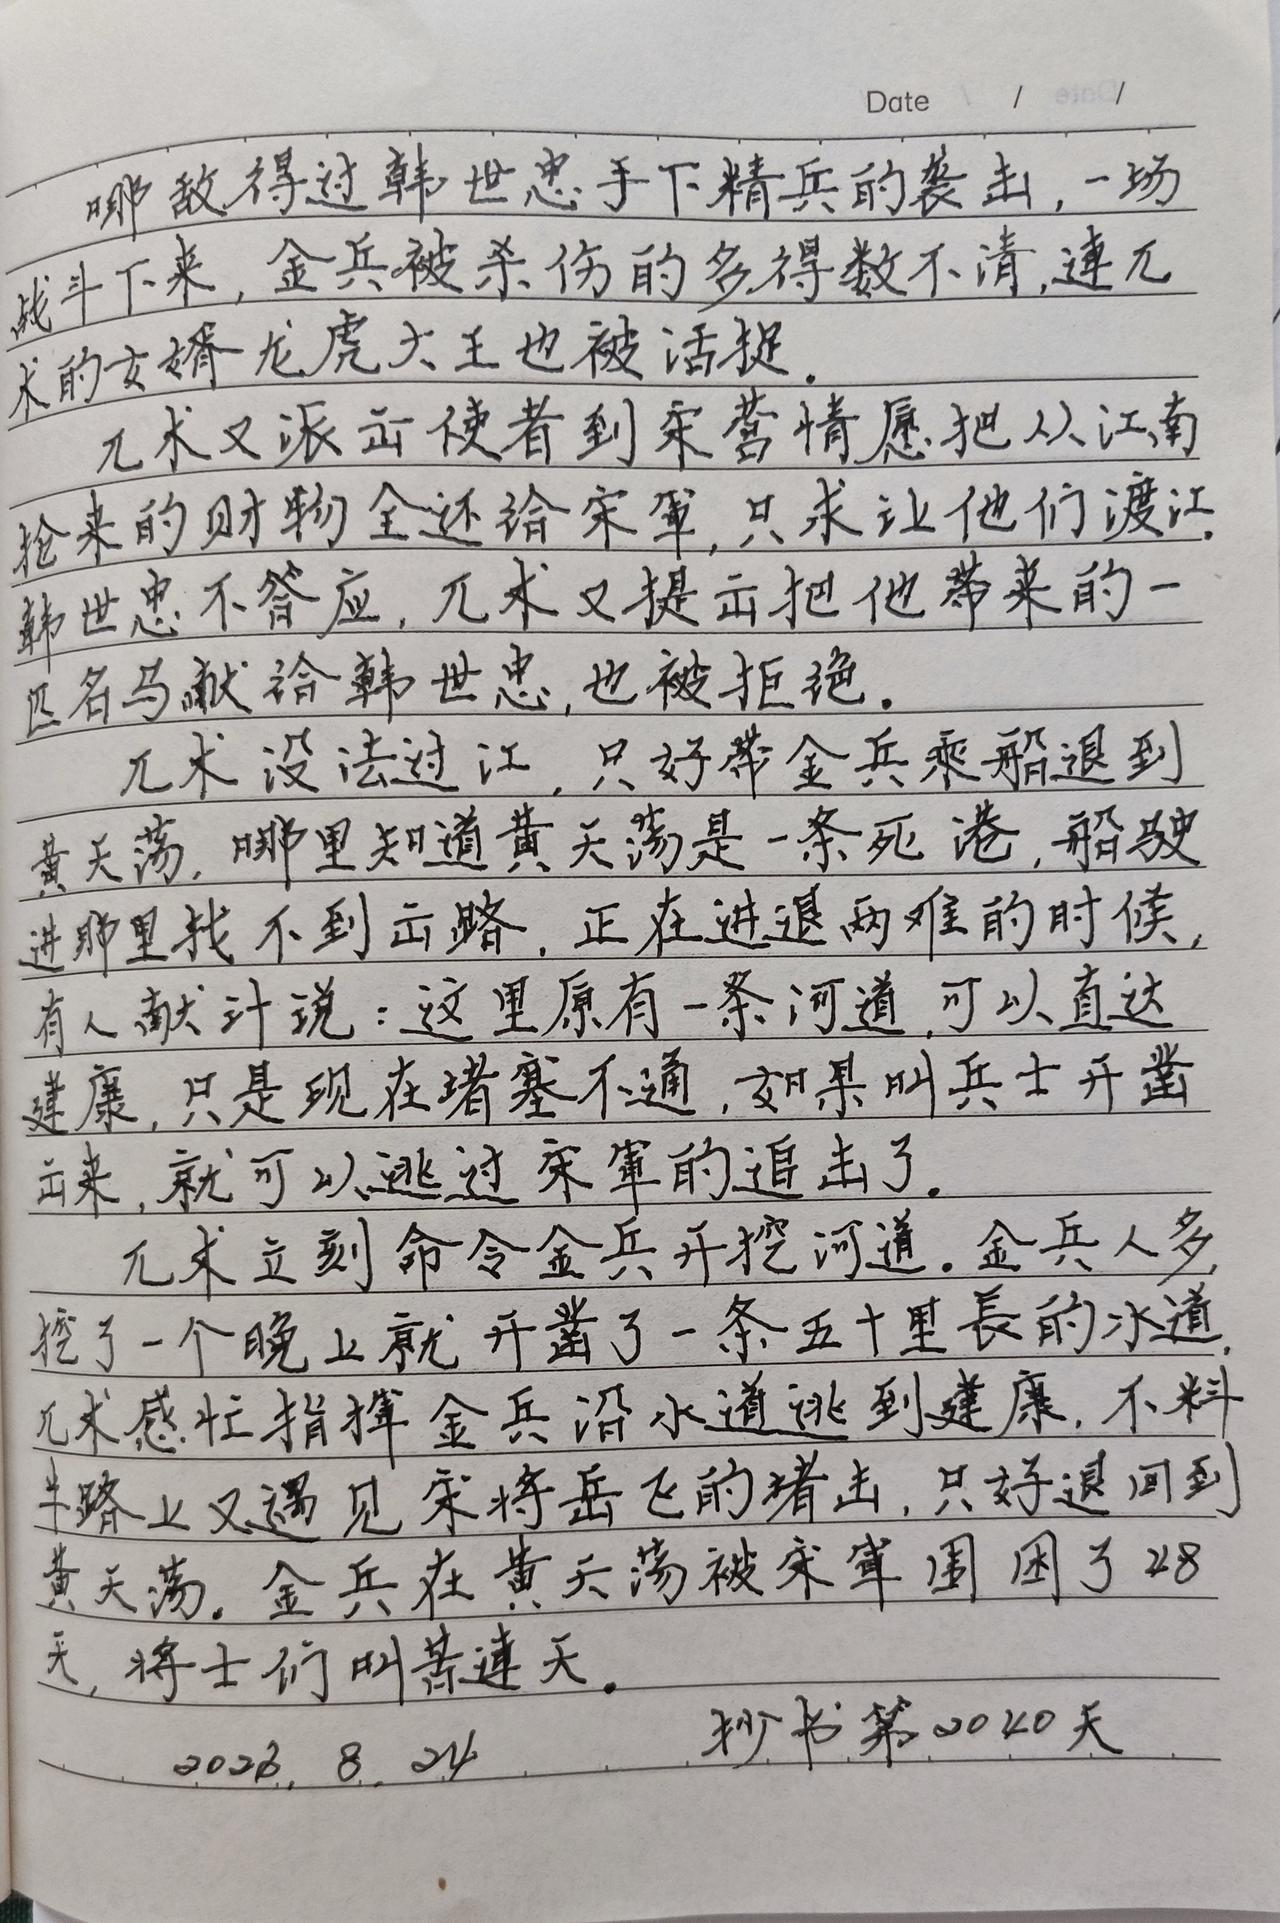 Date / /
哪敌得过韩世忠手下精兵的袭击,一场
战斗下来,金兵被杀伤的多得数不清,連兀
术的女婿龙虎大王也被活捉.
兀术又派出使者到宋营情愿把从江南
抢来的财物全还给宋軍,只求让他们渡江.
韩世忠不答应,兀术又提出把他带来的一
匹名马献给韩世忠,也被拒绝.
兀术没法过江,只好带金兵乘船退到
黄天荡.哪里知道黄天荡是一条死港,船驶
进那里找不到出路.正在进退两难的时候,
有人献计说:这里原有一条河道,可以直达
建康,只是现在堵塞不通,如果叫兵士开凿
出来,就可以逃过宋軍的追击了.
兀术立刻命令金兵开挖河道.金兵人多,
挖了一个晚上就开凿了一条五十里長的水道.
兀术感忙指揮金兵沿水道逃到建康,不料
半路上又遇见宋将岳飞的堵击,只好退回到
黄天荡.金兵在黄天荡被宋軍围困了48
天,将士们叫苦連天.
2023.8.24 抄书第2040天